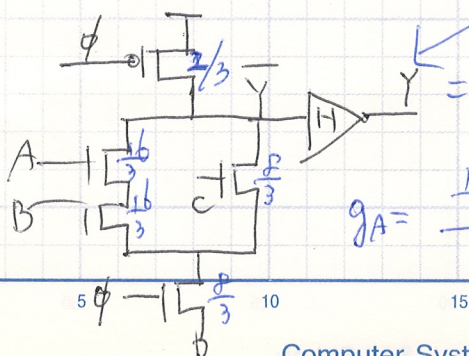 ϕ
2/3
Y̅
H
Y
=
A
16/3
B
16/3
C
8/3
g_A =
ϕ
8/3
5
10
15
Computer Syst